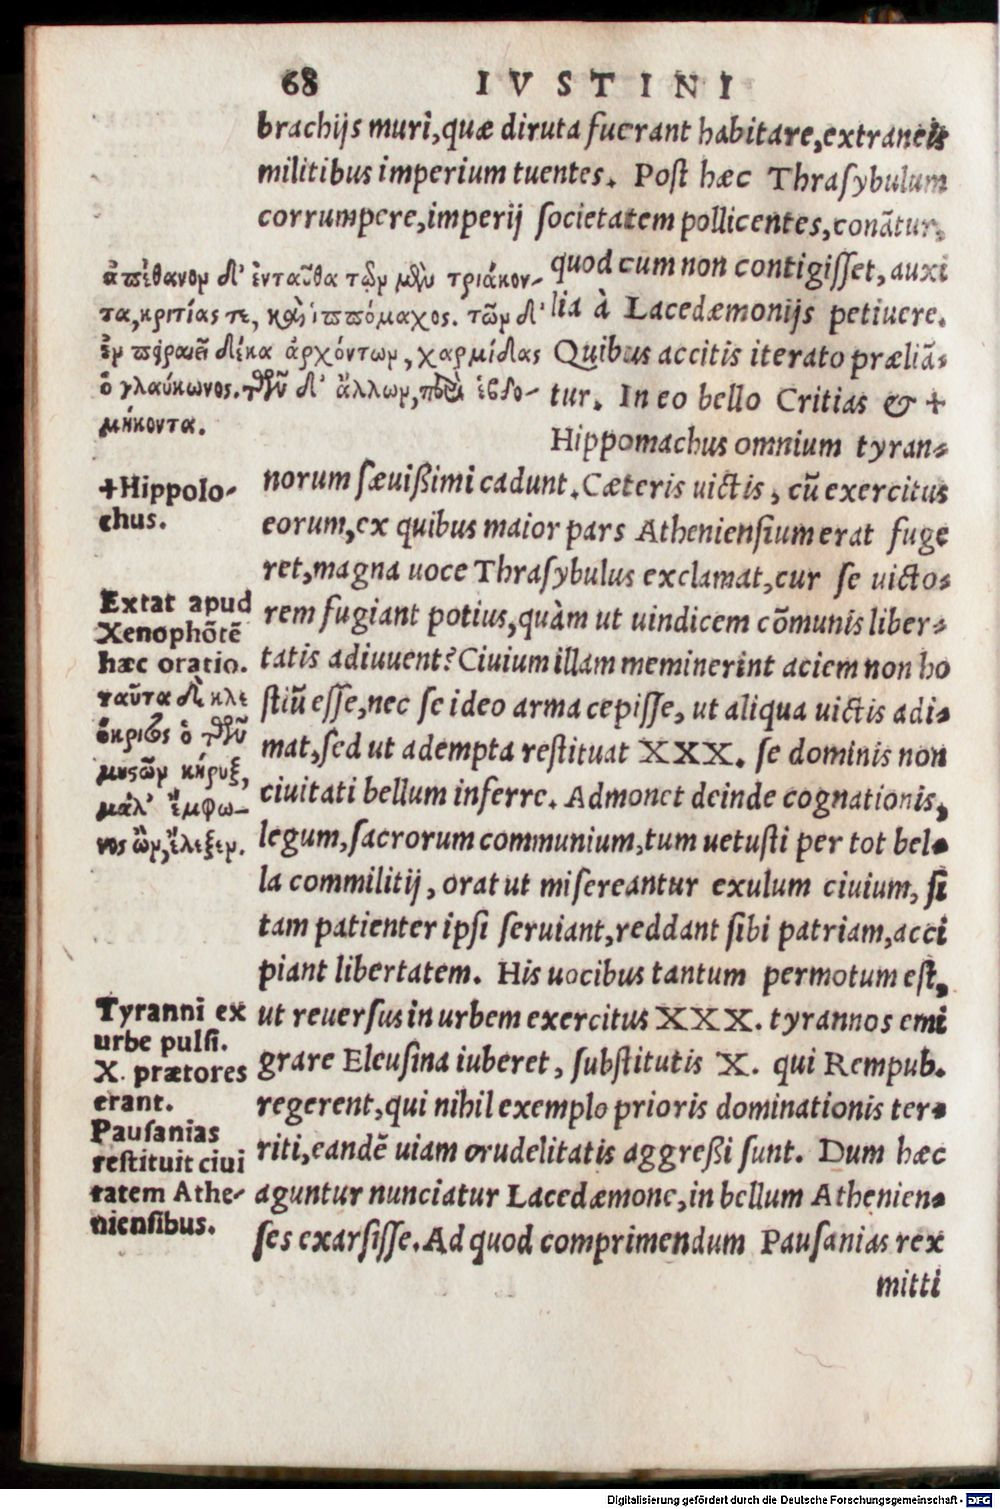 68 IVSTINI
brachijs muri,quæ diruta fuerant habitare,extraneis
militibus imperium tuentes. Post hæc Thrasybulum
corrumpere,imperij societatem pollicentes,conãtur,
quod cum non contigisset, auxi
lia à Lacedæmonijs petiuere.
Quibus accitis iterato præliã-
tur. In eo bello Critias & +
Hippomachus omnium tyran-
norum sæuißimi cadunt. Cæteris uictis, cũ exercitus
eorum,ex quibus maior pars Atheniensium erat fuge
ret,magna uoce Thrasybulus exclamat,cur se uicto-
rem fugiant potius,quàm ut uindicem cõmunis liber-
tatis adiuuent? Ciuium illam meminerint aciem non ho
stiũ esse,nec se ideo arma cepisse, ut aliqua uictis adi-
mat,sed ut adempta restituat XXX. se dominis non
ciuitati bellum inferre. Admonet deinde cognationis,
legum,sacrorum communium,tum uetusti per tot bel-
la commilitij, orat ut misereantur exulum ciuium, si
tam patienter ipsi seruiant,reddant sibi patriam,acci
piant libertatem. His uocibus tantum permotum est,
ut reuersus in urbem exercitus XXX. tyrannos emi
grare Eleusina iuberet, substitutis X. qui Rempub.
regerent,qui nihil exemplo prioris dominationis ter-
riti,eandẽ uiam crudelitatis aggreßi sunt. Dum hæc
aguntur nunciatur Lacedæmone,in bellum Athenien-
ses exarsisse. Ad quod comprimendum Pausanias rex
mitti
ἀπέθανον δ' ἐνταῦθα τῶν μὲν τριάκον-
τα,κριτίας τε, καὶ ἱππόμαχος. τῶν δ'
ἐν πειραιεῖ δέκα ἀρχόντων, χαρμίδας
ὁ γλαύκωνος. τῶν δ' ἄλλων, περὶ ἑβδο-
μήκοντα.
+Hippolo-
chus.
Extat apud
Xenophõtẽ
hæc oratio.
ταῦτα δὲ κλε
όκριτος ὁ τῶν
μυστῶν κήρυξ,
μάλ' εὔφω-
νος ὢν,ἔλεξεν.
Tyranni ex
urbe pulsi.
X. prætores
erant.
Pausanias
restituit ciui
tatem Athe-
niensibus.
Digitalisierung gefördert durch die Deutsche Forschungsgemeinschaft - DFG